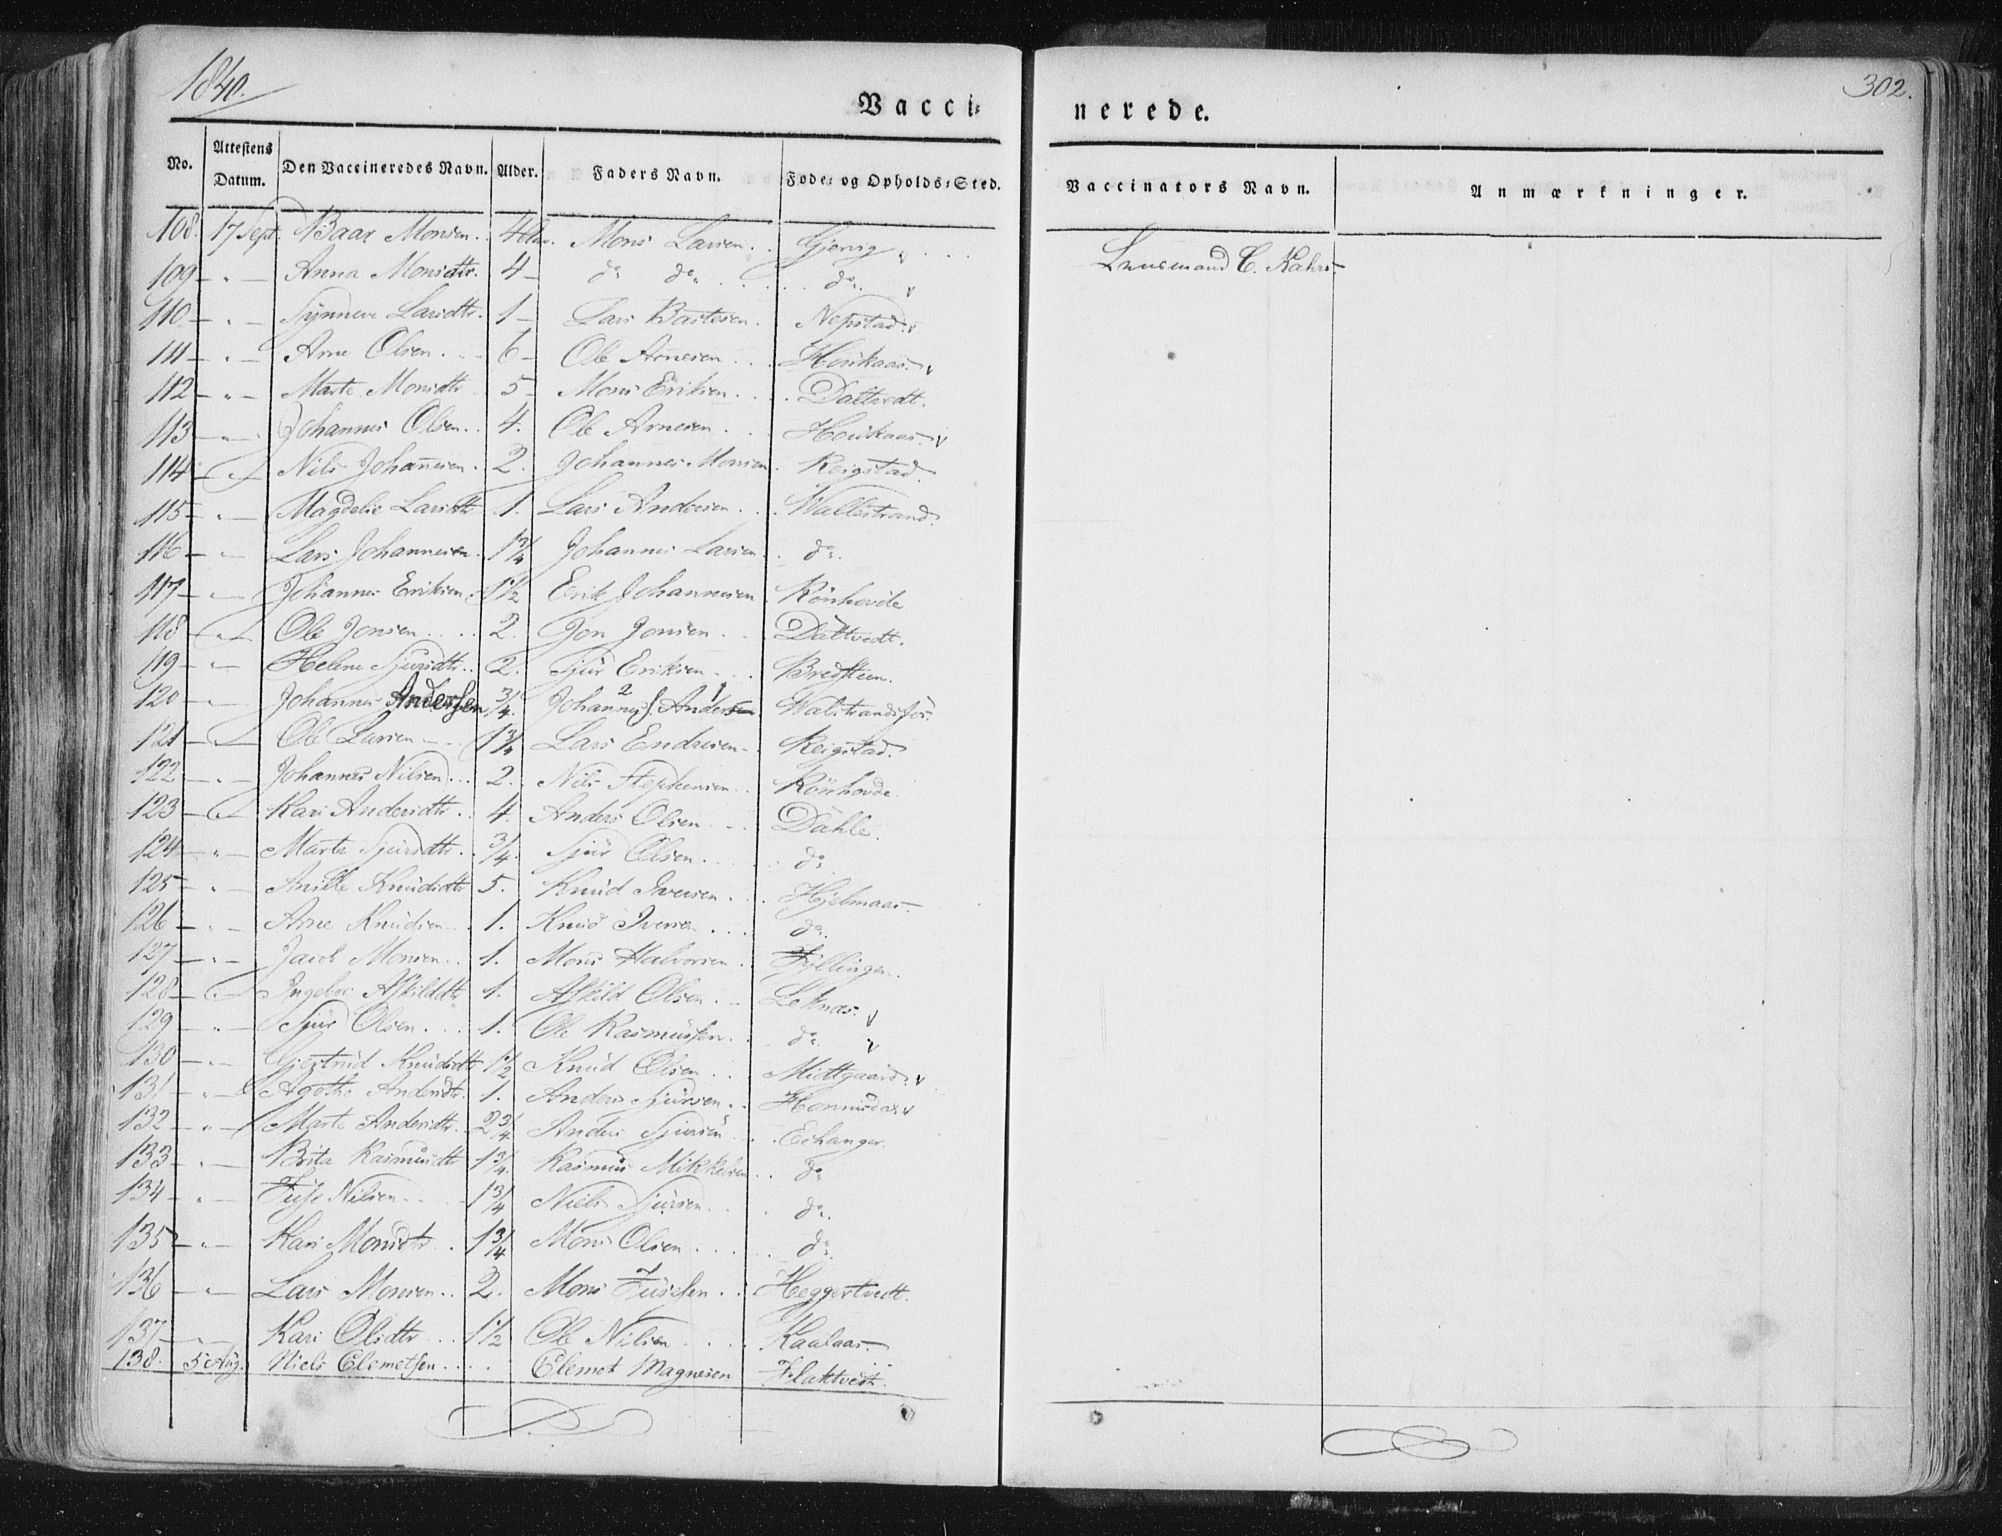 1840.
302.
Vacci-
nerede.
No. Attestens Datum. Den Vaccineredes Navn. Alder. Faders Navn. Føde- og Opholds-Sted.
Vaccinators Navn. Anmærkninger.
108. 17 Sept. Baar Monsen. 4 Mons Larsen. Gjervig
Lensmand C. Kahrs
109 - " - Anna Monsdtr. 4 - do do do.
110 - " - Synneve Larsdtr. 1 - Lars Bastesen. Nepstad.
111 - " - Arne Olsen. 6 - Ole Arnesen. Houkaas.
112 - " - Marte Monsdtr. 5 - Mons Eriksen. Daltvedt.
113 - " - Johannes Olsen. 4. Ole Arnesen. Houkaas.
114 - " - Nils Johannesen. 2. Johannes Monsen Reigstad.
115 - " - Magdelie Larsdtr 1. Lars Andersen. Wallestrand.
116 - " - Lars Johannesen. 1 3/4 Johannes Larsen. do.
117 - " - Johannes Eriksen. 1 1/2 Erik Johannesen. Rönhovde
118 - " - Ole Jonsen. 2. Jon Jonsen. Daltvedt.
119 - " - Helene Sjursdtr. 2. Sjur Eriksen. Bredsteen.
120 - " - Johannes Andersen 3/4. Johannes J. Andersen Walstrandsfos.
121 - " - Ole Larsen 1 3/4 Lars Endresen Reigstad.
122 - " - Johannes Nilsen. 2. Nils Stephensen. Rönhovde.
123 - " - Kari Andersdtr. 4. Anders Olsen. Dahle.
124 - " - Marte Sjursdtr. 3/4. Sjur Olsen. do
125 - " - Anille Knudsdtr 5. Knud Iversen. Hjelmaas.
126 - " - Arne Knudsen. 1. Knud Iversen. do.
127 - " - Jacob Monsen. 1. Mons Halvorsen. Fyllingen.
128 - " - Ingebor Askilddtr 1. Askild Olsen. Leknæs.
129 - " - Sjur Olsen. 1. Ole Rasmussen. do.
130 - " - Giertrud Knudsdtr 1 1/2 Knud Olsen. Midtgaard.
131 - " - Agothe Andersdtr. 1. Anders Sjursen. Hommsdal
132 - " - Marte Andersdtr. 2 3/4. Anders Sjursen. Echanger.
133 - " - Brita Rasmusdtr 1 3/4. Rasmus Mikkelsen. do
134 - " - Fuse Nilsen. 1 3/4 Niels Sjursen. do.
135 - " - Kari Monsdtr. 1 3/4 Mons Olsen. do.
136 - " - Lars Monsen. 2. Mons Fusesen. Heggertvedt.
137 - " - Kari Olsdtr. 1 1/2 Ole Nilsen. Kaalaas.
138. 5 Aug. Niels Clemetsen. Clemet Magnesen Flaktvedt.